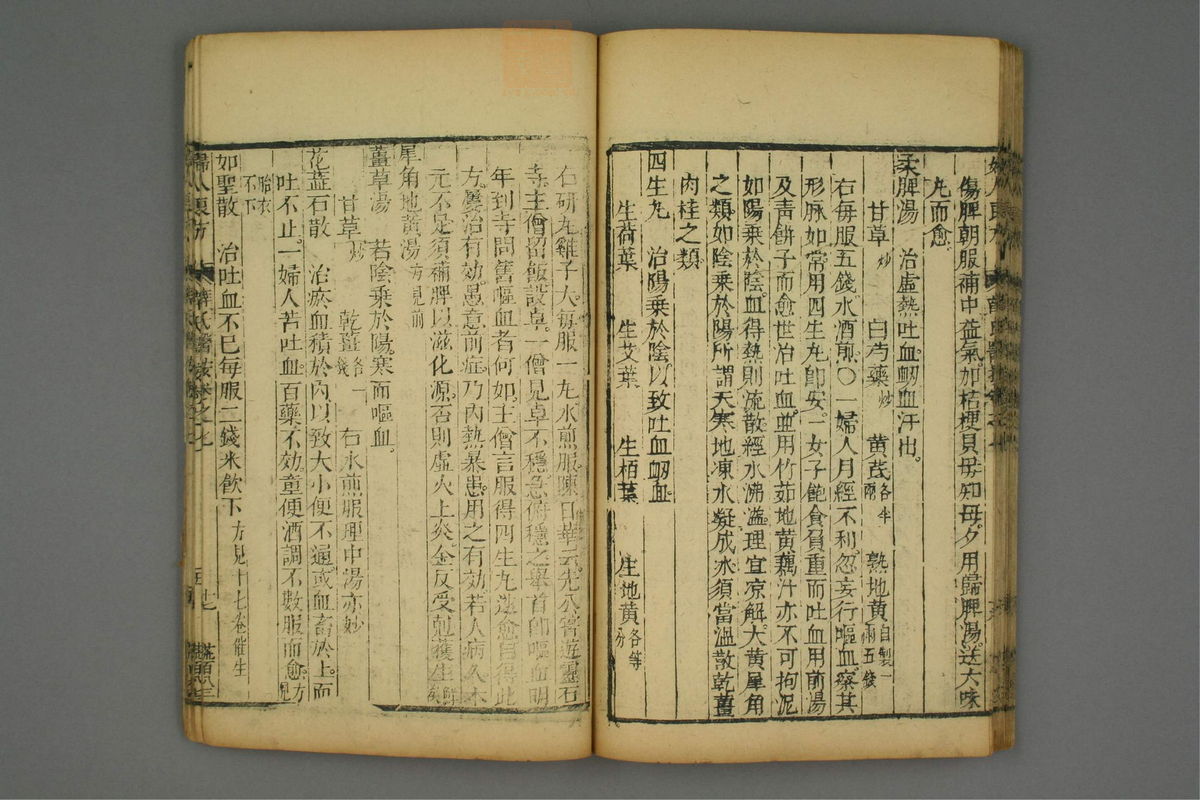 傷脾朝服補中益氣加桔梗貝母知母夕用歸脾湯送六味
丸而愈
柔脾湯 治虛熱吐血衂血汗出。
甘草炒 白芍藥炒 黃芪各半兩 熟地黃自製一兩五錢
右每服五錢水酒煎〇一婦人月經不利忽妄行嘔血察其
形脉如常用四生丸卽安一女子飽食負重而吐血用前湯
及靑餅子而愈世治吐血並用竹茹地黃藕汁亦不可拘泥
如陽乗於陰血得熱則流散經水沸溢理宜凉解大黃犀角
之類如陰乗於陽所謂天寒地凍水凝成氷須當溫散乾薑
肉桂之類
四生丸 治陽乗於陰以致吐血衂血
生荷葉 生艾葉 生栢葉 生地黃各等分
右研丸雞子大每服一丸水煎服陳日華云先公嘗遊靈石
寺主僧留飯設卓一僧見卓不穩急俯穩之舉首卽嘔血明
年到寺問舊嘔血者何如主僧言服得四生丸遂愈自得此
方屢治有効愚意前症乃內熱暴患用之有効若人病久本
元不足須補脾以滋化源否則虛火上炎金反受剋獲生鮮矣
犀角地黃湯方見前
薑草湯 若陰乗於陽寒而嘔血。
甘草炒 乾薑各一錢 右水煎服理中湯亦妙
花蕋石散 治瘀血積於內以致大小便不通或血畜於上而
吐不止一婦人苦吐血百藥不効童便酒調不數服而愈方見
胎衣不下
如聖散 治吐血不已每服二錢米飲下方見十七卷催生
婦人良方 薛氏醫按卷之七